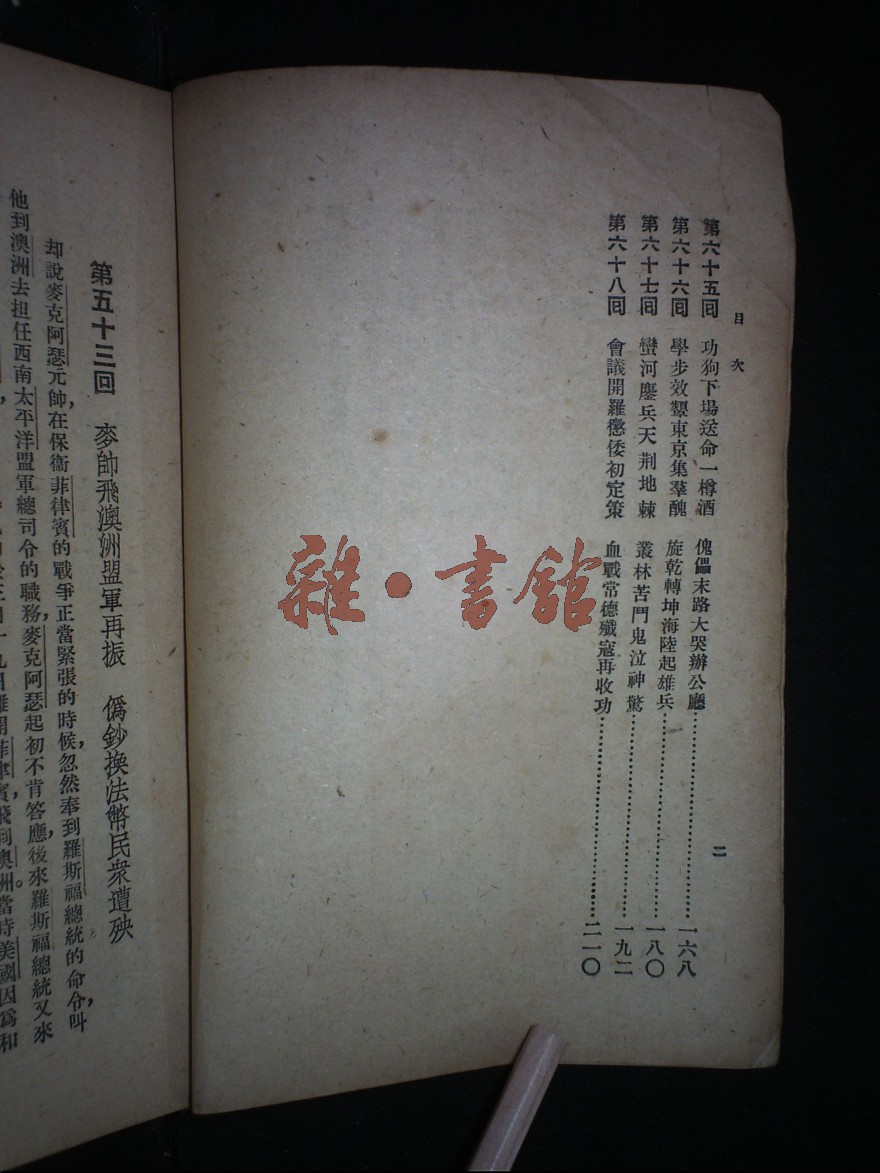 目次
二
第六十五回 功狗下場送命一樽酒 傀儡末路大哭辦公廳……一六八
第六十六回 學步效顰東京集羣醜 旋乾轉坤海陸起雄兵……一八〇
第六十七回 蠻河鏖兵天荆地棘 叢林苦鬥鬼泣神驚……一九二
第六十八回 會議開羅懲倭初定策 血戰常德殲寇再收功……二一〇
雜·書館
第五十三回 麥帥飛澳洲盟軍再振 僞鈔換法幣民衆遭殃
却說麥克阿瑟元帥,在保衞菲律賓的戰爭正當緊張的時候,忽然奉到羅斯福總統的命令,叫
他到澳洲去担任西南太平洋盟軍總司令的職務,麥克阿瑟起初不肯答應,後來羅斯福總統又來
月十九日離開菲律賓,飛到澳洲。當時美國因爲和